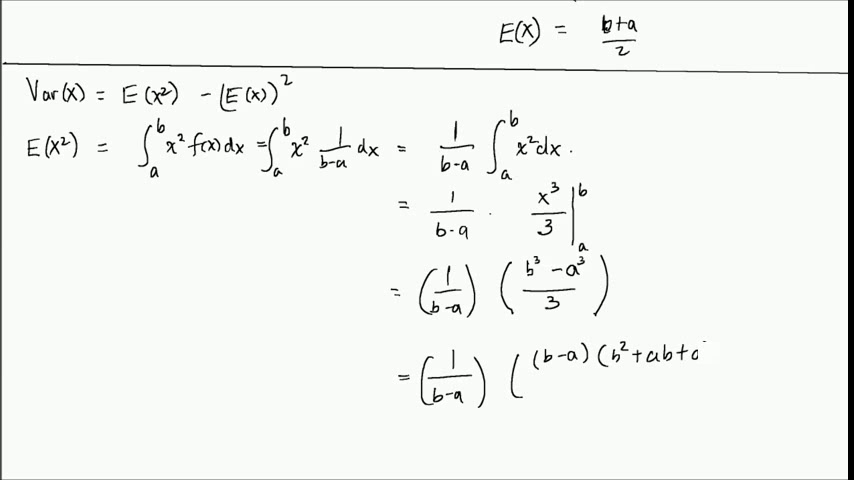 E(X) = b+a/2
Var(X) = E(X²) - (E(X))²
E(X²) = ∫_a^b x² f(x)dx = ∫_a^b x² 1/b-a dx = 1/b-a ∫_a^b x²dx.
= 1/b-a · x³/3 |_a^b
= (1/b-a) (b³-a³/3)
= (1/b-a) ( (b-a)(b²+ab+